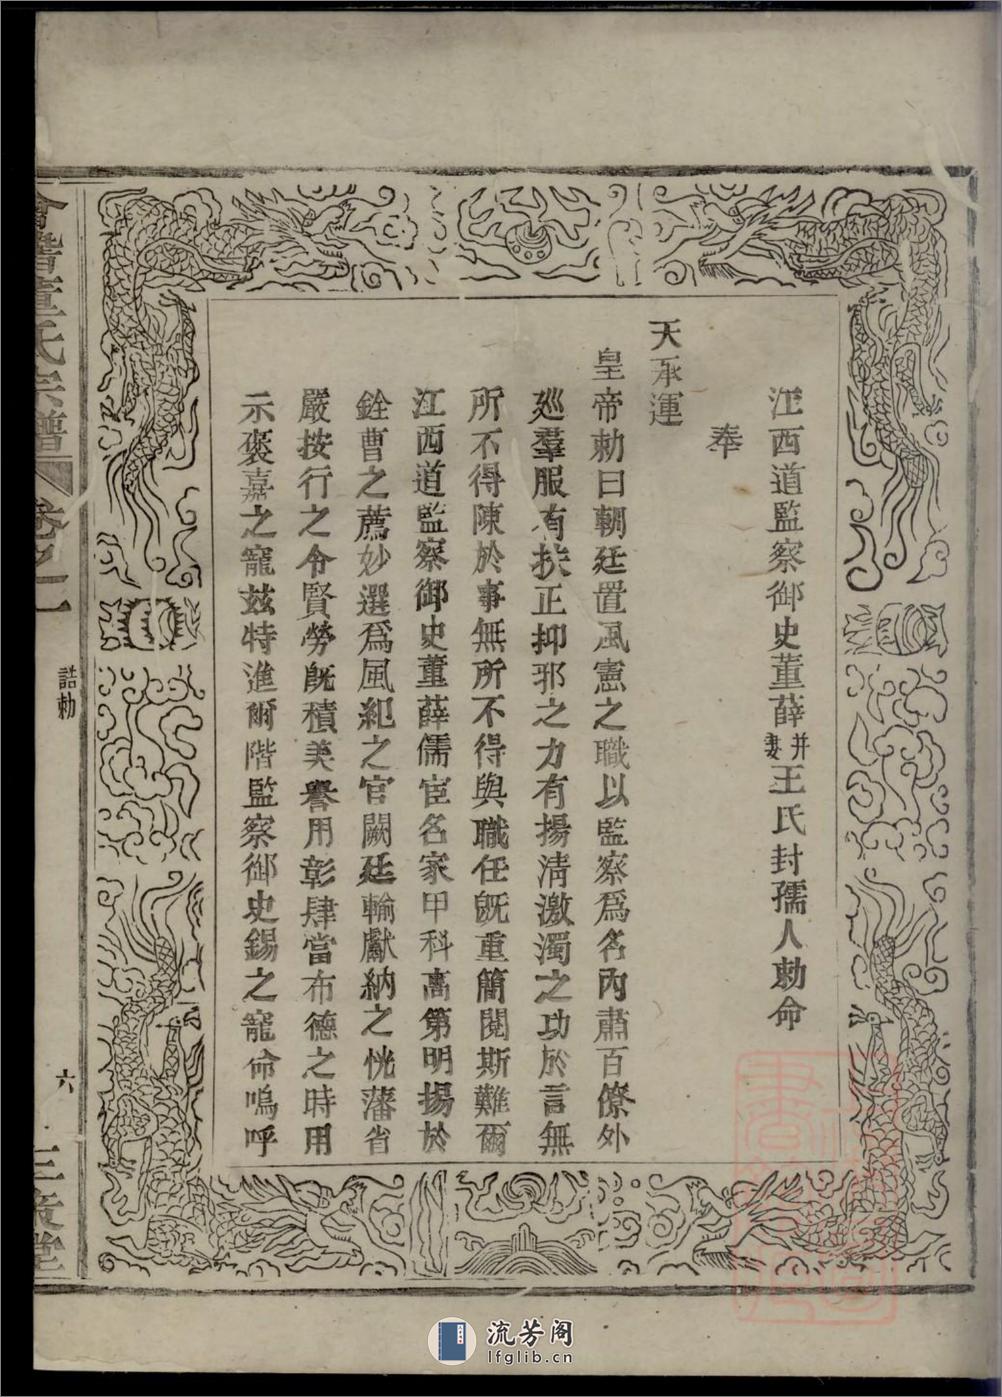 江西道監察御史董薛并妻王氏封孺人勅命
奉
天承運
皇帝勅曰朝廷置風憲之職以監察爲名內肅百僚外
廵羣服有扶正抑邪之力有揚清激濁之功於言無
所不得陳於事無所不得與職任旣重簡閱斯難爾
江西道監察御史董薛儒宦名家甲科高第明揚於
銓曹之薦妙選爲風紀之官闕廷輸獻納之恍藩省
嚴按行之令賢勞旣積美譽用彰肆當布德之時用
示褒嘉之寵玆特進爾階監察御史錫之寵命嗚呼
會稽董氏宗譜
卷之一
誥勅
六
三策堂
流芳阁
lfglib.cn